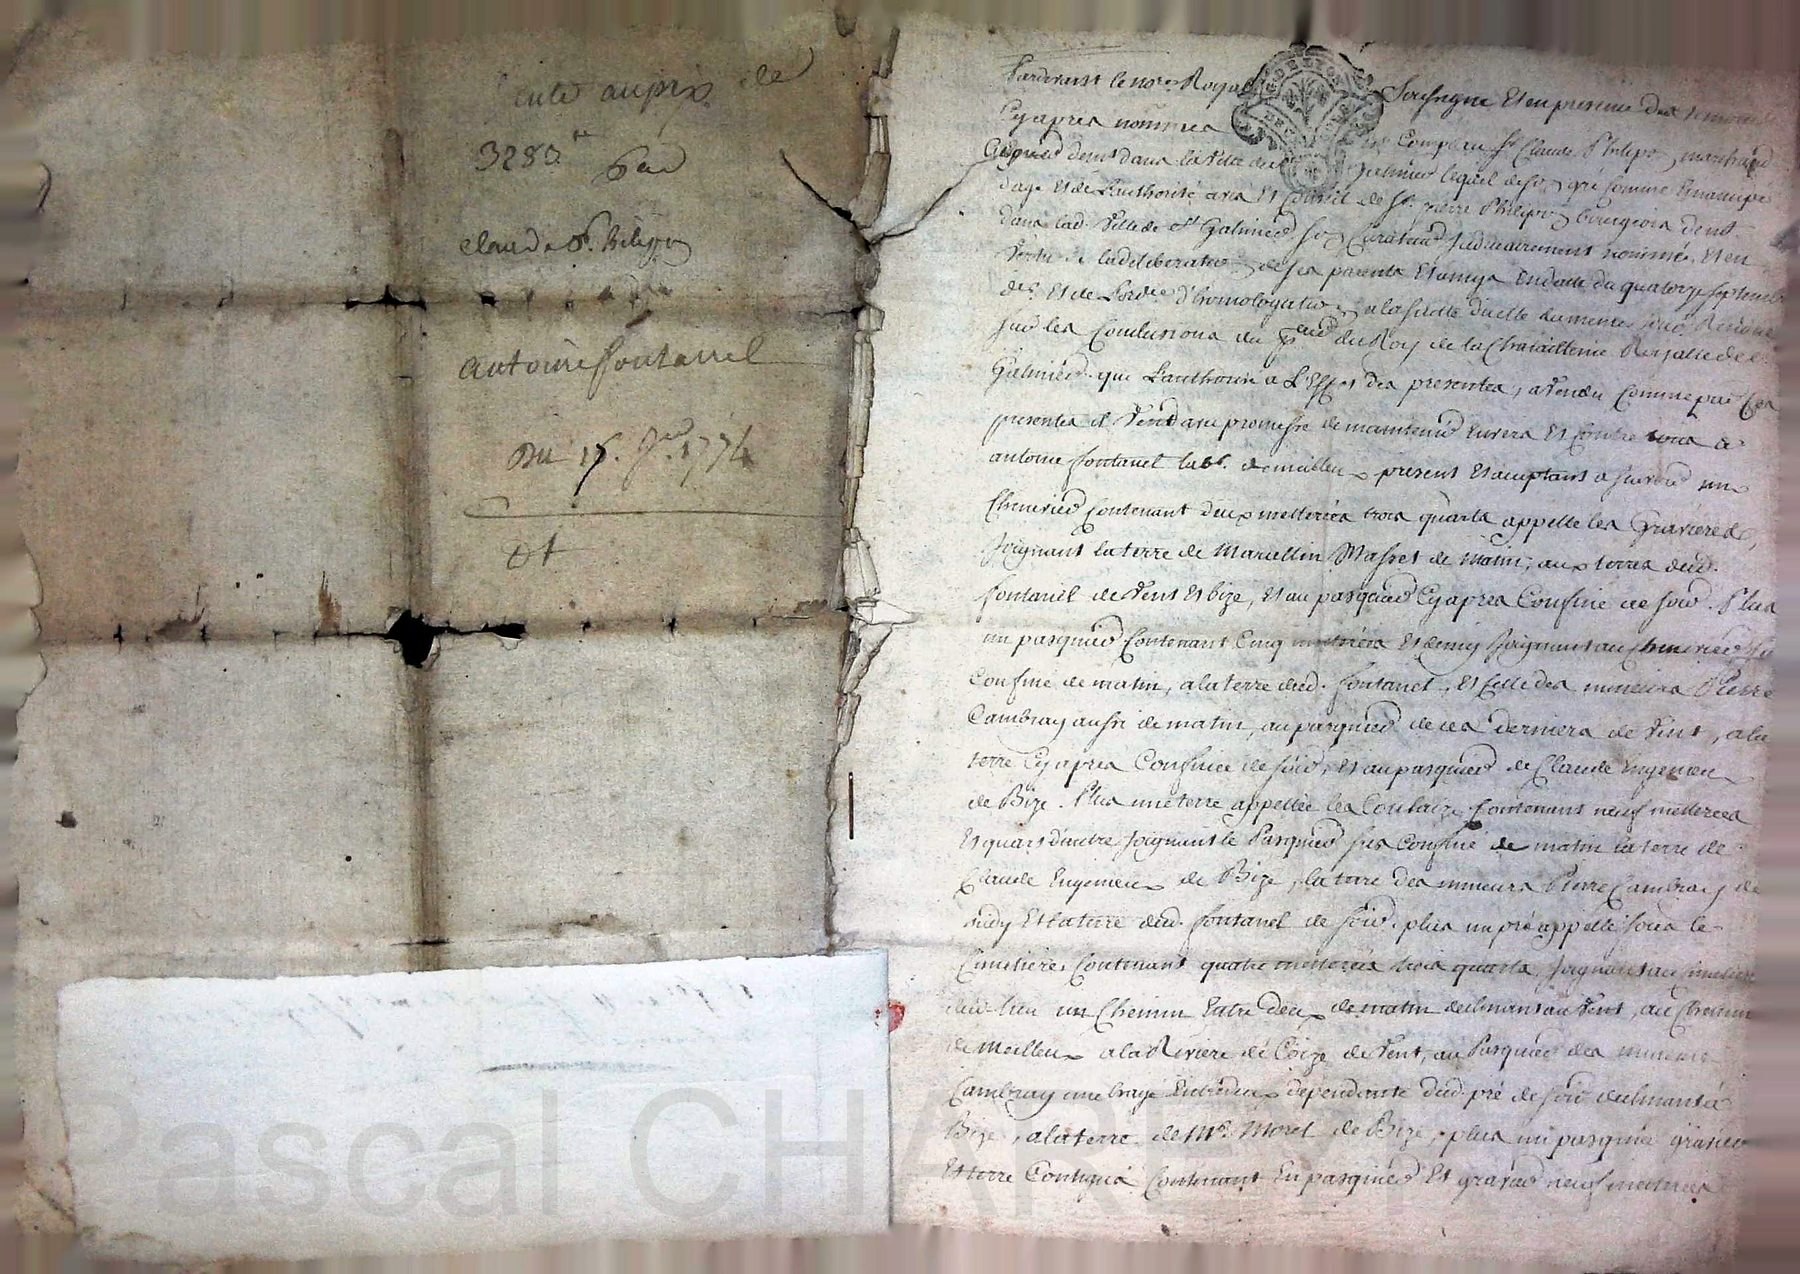 vente au prix de
3280ᵗᵗ
Par
Claude Philipon
a
Antoine fontanel
Du 15. 7.ʳᵉ 1774
Dt
Pardevant le noʳᵉ Royal Soussigné Et en presence des temoins
Cy apres nommés Claude Philipon marchand
demt dans la Ville de Galmier lequel de son gré comme Emancipé
d'age Et de L'authorité avis Et Conseil de Sʳ pierre Philipon bourgeois demt
dans lad. Ville de St Galmier son Curateur judiciairement nommé, Et en
Vertu de la deliberation de ses parents Et amys En datte du quatorze septembre
Et de Lordce d'homologation a la suitte d'icelle du meme jour
sur les Conclusions du du Roy de la Chatellenie Royalle de St
Galmier qui L'authorise a L'Effet des presentes, a Vendu Comme par Ces
presentes il Vend avec promesse de maintenir Envers Et Contre tous a
antoine fontanel lab. de meilleux present Et acceptant a sçavoir un
Chenevier Contenant deux metterées trois quarts appellé les Gravieres,
joignant la terre de Marcellin de matin, aux terres dud.
fontanel de Vent Et bize, Et au pasquier Cy apres Confiné de soir. Plus
un pasquier Contenant Cinq metterées Et demy joignant au Chenevier
Confiné de matin, a la terre dud. fontanel, Et Celle des mineurs Pierre
Cambray aussi de matin, au pasquier de ces derniers de Vent, a la
terre Cy apres Confinée de soir, Et au pasquier de Claude Engenieux
de Bize. Plus une terre appellée les Contenant neuf metterées
Et quart d'autre joignant le Pasquier sus Confiné de matin la terre de
Claude Engenieux de Bize, la terre des mineurs Pierre Cambray de
midy Et la terre dud. fontanel de soir. plus un pré appellé sous le
Cimetiere, Contenant quatre metterées trois quarts, joignant au Cimetiere
dud. lieu un Chemin Entre deux de matin declinant au Vent, au Chemin
de Meilleux a la Riviere de Coize de Vent, au Pasquier des mineurs
Cambray une Entredeux dependante dud. pré de soir declinant a
Bize, a la terre de Mʳ Morel de Bize, plus un pasquier gravier
Et terre Contigus Contenant En pasquier Et gravier neuf metterées
Pascal CHAREYRON